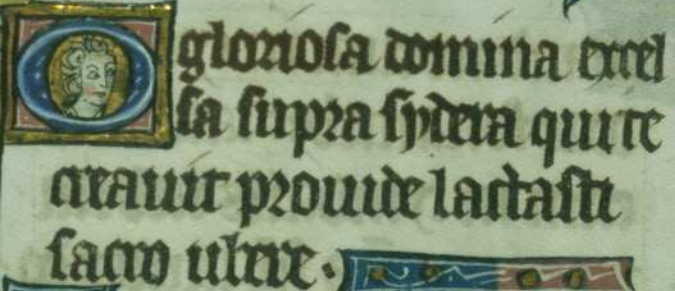 O gloriosa domina excel
sa supra sydera qui te
creauit prouide lactasti
sacro ubere.